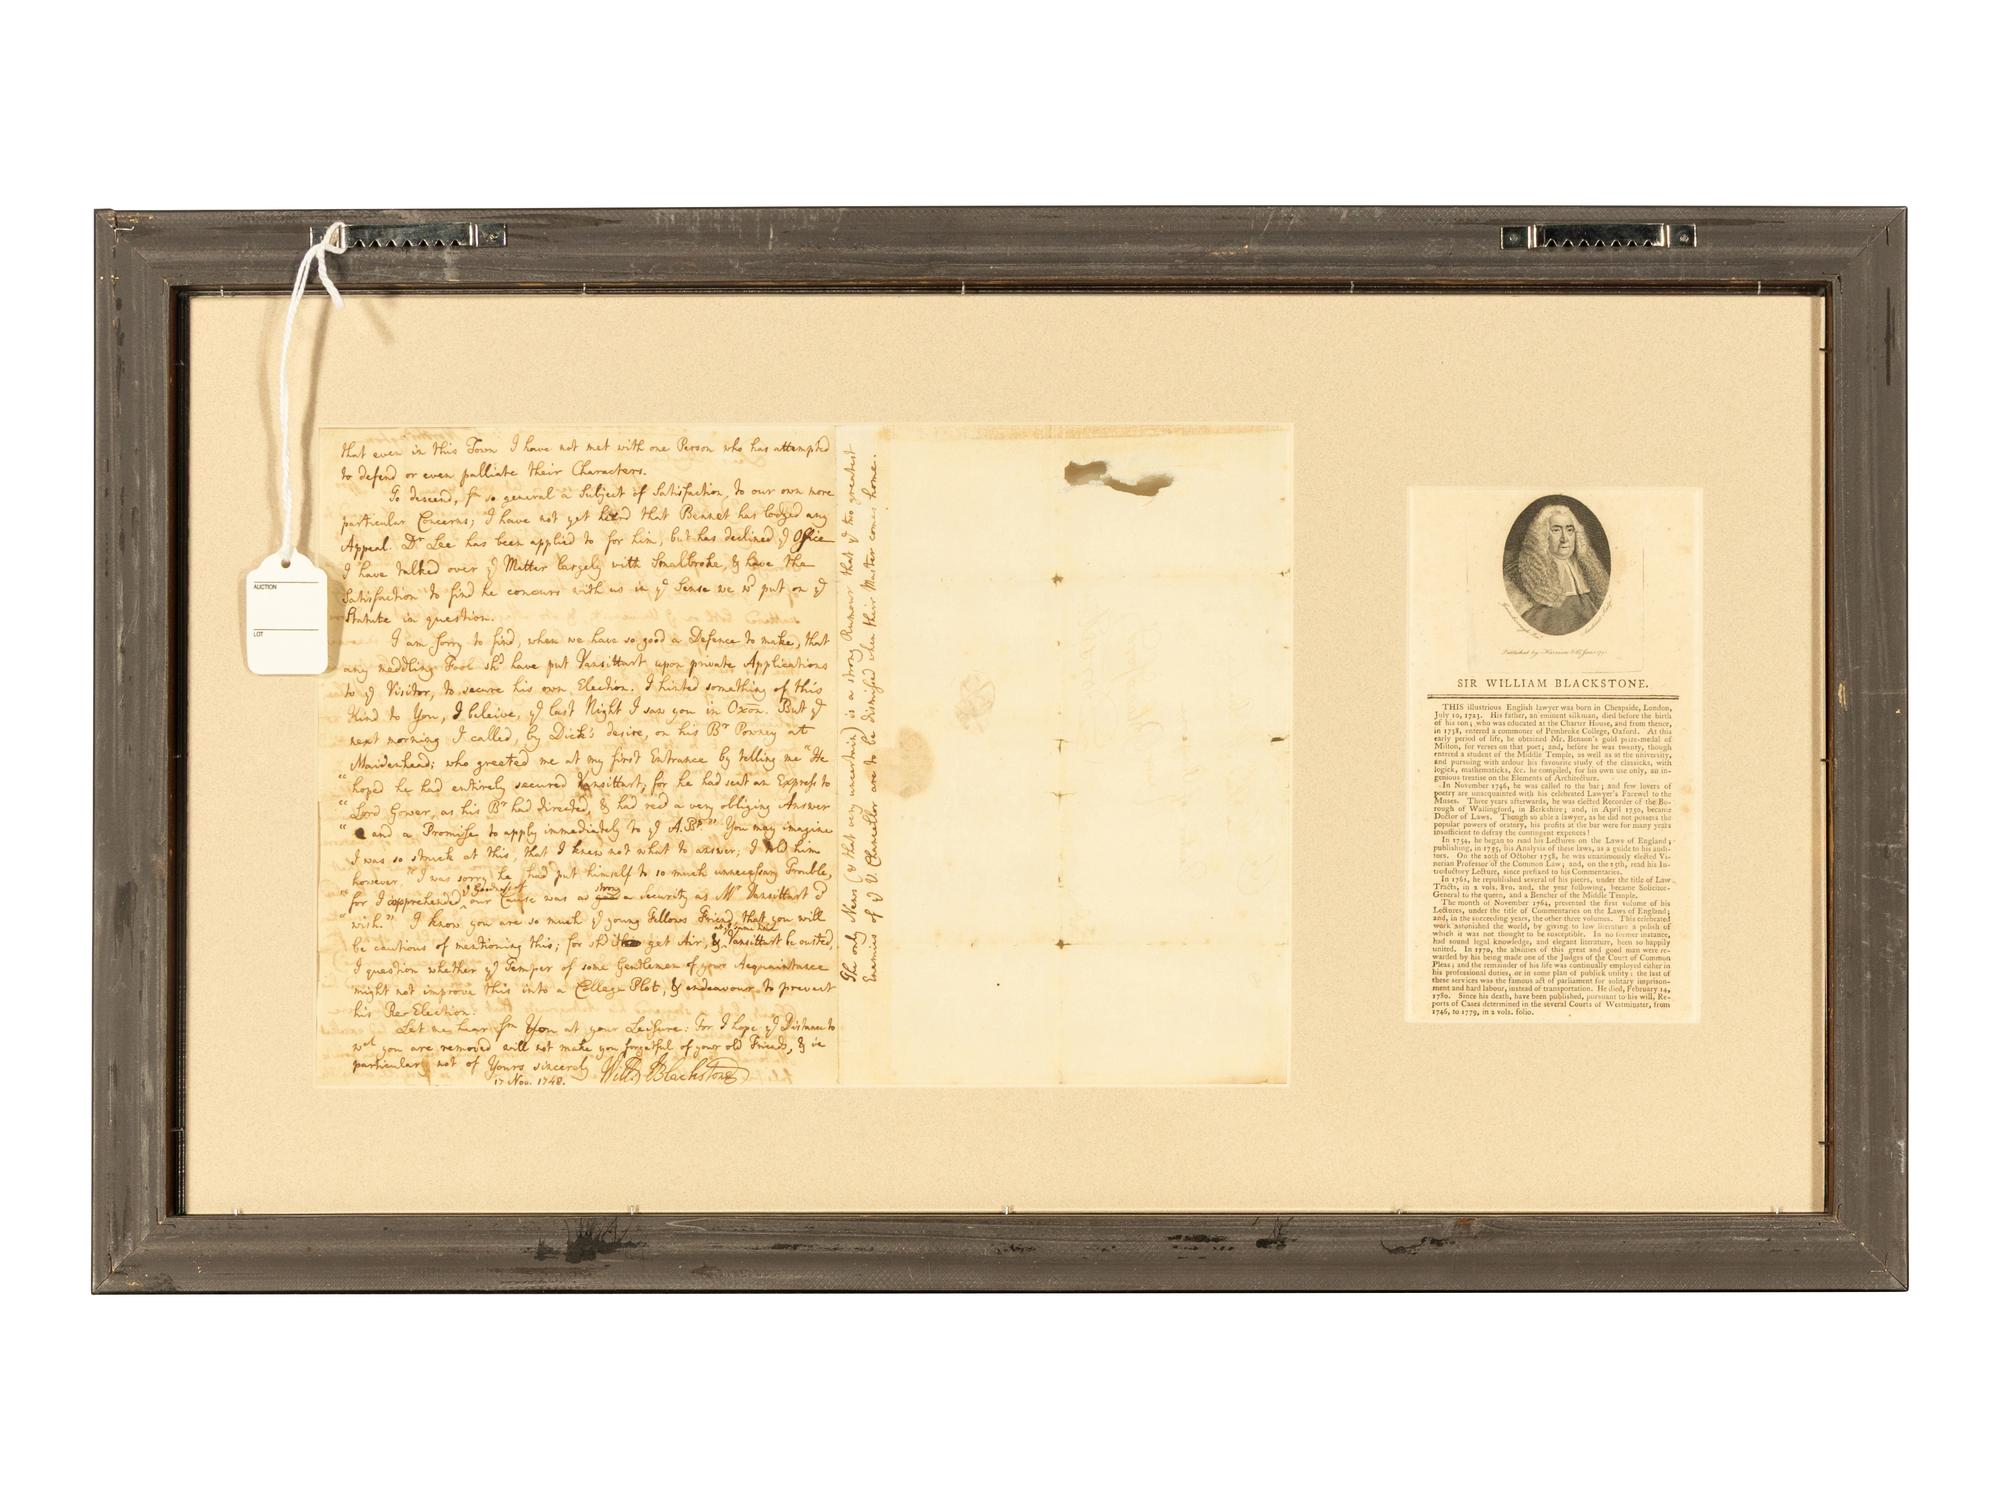 that even in this Town I have not met with one Person who has attempted
to defend or even palliate their Characters.
To descend, fm so general a Subject of Satisfaction, to our own more
particular Concerns; I have not yet heard that Bennet has lodged any
Appeal. Dr Lee has been applied to for him, but has declined ye Office
I have talked over ye Matter largely with Smalbroke, & have the
Satisfaction to find he concurs with us in ye Sense we wd put on ye
Statute in question.
I am sorry to find, when we have so good a Defence to make, that
any meddling Fool shd have put Vansittart upon private Applications
to ye Visitor, to secure his own Election. I hinted something of this
Kind to You, I beleive, ye last Night I saw you in Oxon. But ye
next morning I called, by Dick's desire, on his Br Powney at
Maidenhead; who greeted me at my first Entrance by telling me "He
"hoped he had entirely secured Vansittart, for he had sent an Express to
"Lord Gower, as his Br had directed, & had recd a very obliging Answer
" and a Promise to apply immediately to ye A.Bp." You may imagine
I was so struck at this, that I knew not what to answer; I told him
however, "I was sorry he had put himself to so much unnecessary Trouble,
"for I apprehended ye Goodness of our Cause was as strong a security as Mr Vansittart cd
"wish." I know you are so much ye young Fellows Friend, that you will
be cautious of mentioning this; for shd it get Air, & Vansittart be ousted,
I question whether ye Temper of some Gentlemen of your Acquaintance
might not improve this into a College Plot, & endeavour to prevent
his Re-Election.
Let me hear fm You at your Leisure: for I hope ye Distance to
wch you are removed will not make you forgetful of your old Friends, & in
particular not of Yours sincerely Willm Blackstone
17 Nov. 1748.
The only News (& that very uncertain) is a strong Rumour that ye two greatest
Enemies of ye V. Chancellor are to be dismised when their Master comes home.
AUCTION
LOT
Published by Harrison & Co
SIR WILLIAM BLACKSTONE.
THIS illustrious English lawyer was born in Cheapside, London,
July 10, 1723. His father, an eminent silkman, died before the birth
of his son; who was educated at the Charter House, and from thence,
in 1738, entered a commoner of Pembroke College, Oxford. At this
early period of life, he obtained Mr. Benson's gold prize-medal of
Milton, for verses on that poet; and, before he was twenty, though
entered a student of the Middle Temple, as well as at the university,
and pursuing with ardour his favourite study of the classicks, with
logick, mathematicks, &c. he compiled, for his own use only, an in-
genious treatise on the Elements of Architecture.
In November 1746, he was called to the bar; and few lovers of
poetry are unacquainted with his celebrated Lawyer's Farewel to the
Muses. Three years afterwards, he was elected Recorder of the Bo-
rough of Wallingford, in Berkshire; and, in April 1750, became
Doctor of Laws. Though so able a lawyer, as he did not possess the
popular powers of oratory, his profits at the bar were for many years
insufficient to defray the contingent expences!
In 1754, he began to read his Lectures on the Laws of England;
publishing, in 1755, his Analysis of these laws, as a guide to his audi-
tors. On the 20th of October 1758, he was unanimously elected Vi-
nerian Professor of the Common Law; and, on the 25th, read his In-
troductory Lecture, since prefixed to his Commentaries.
In 1761, he republished several of his pieces, under the title of Law
Tracts, in 2 vols. 8vo, and, the year following, became Solicitor-
General to the queen, and a Bencher of the Middle Temple.
The month of November 1764, presented the first volume of his
Lectures, under the title of Commentaries on the Laws of England;
and, in the succeeding years, the other three volumes. This celebrated
work astonished the world, by giving to law literature a polish of
which it was not thought to be susceptible. In no former instance,
had sound legal knowledge, and elegant literature, been so happily
united. In 1770, the abilities of this great and good man were re-
warded by his being made one of the Judges of the Court of Common
Pleas; and the remainder of his life was continually employed either in
his professional duties, or in some plan of publick utility: the last of
these services was the famous act of parliament for solitary imprison-
ment and hard labour, instead of transportation. He died, February 14,
1780. Since his death, have been published, pursuant to his will, Re-
ports of Cases determined in the several Courts of Westminster, from
1746, to 1779, in 2 vols. folio.